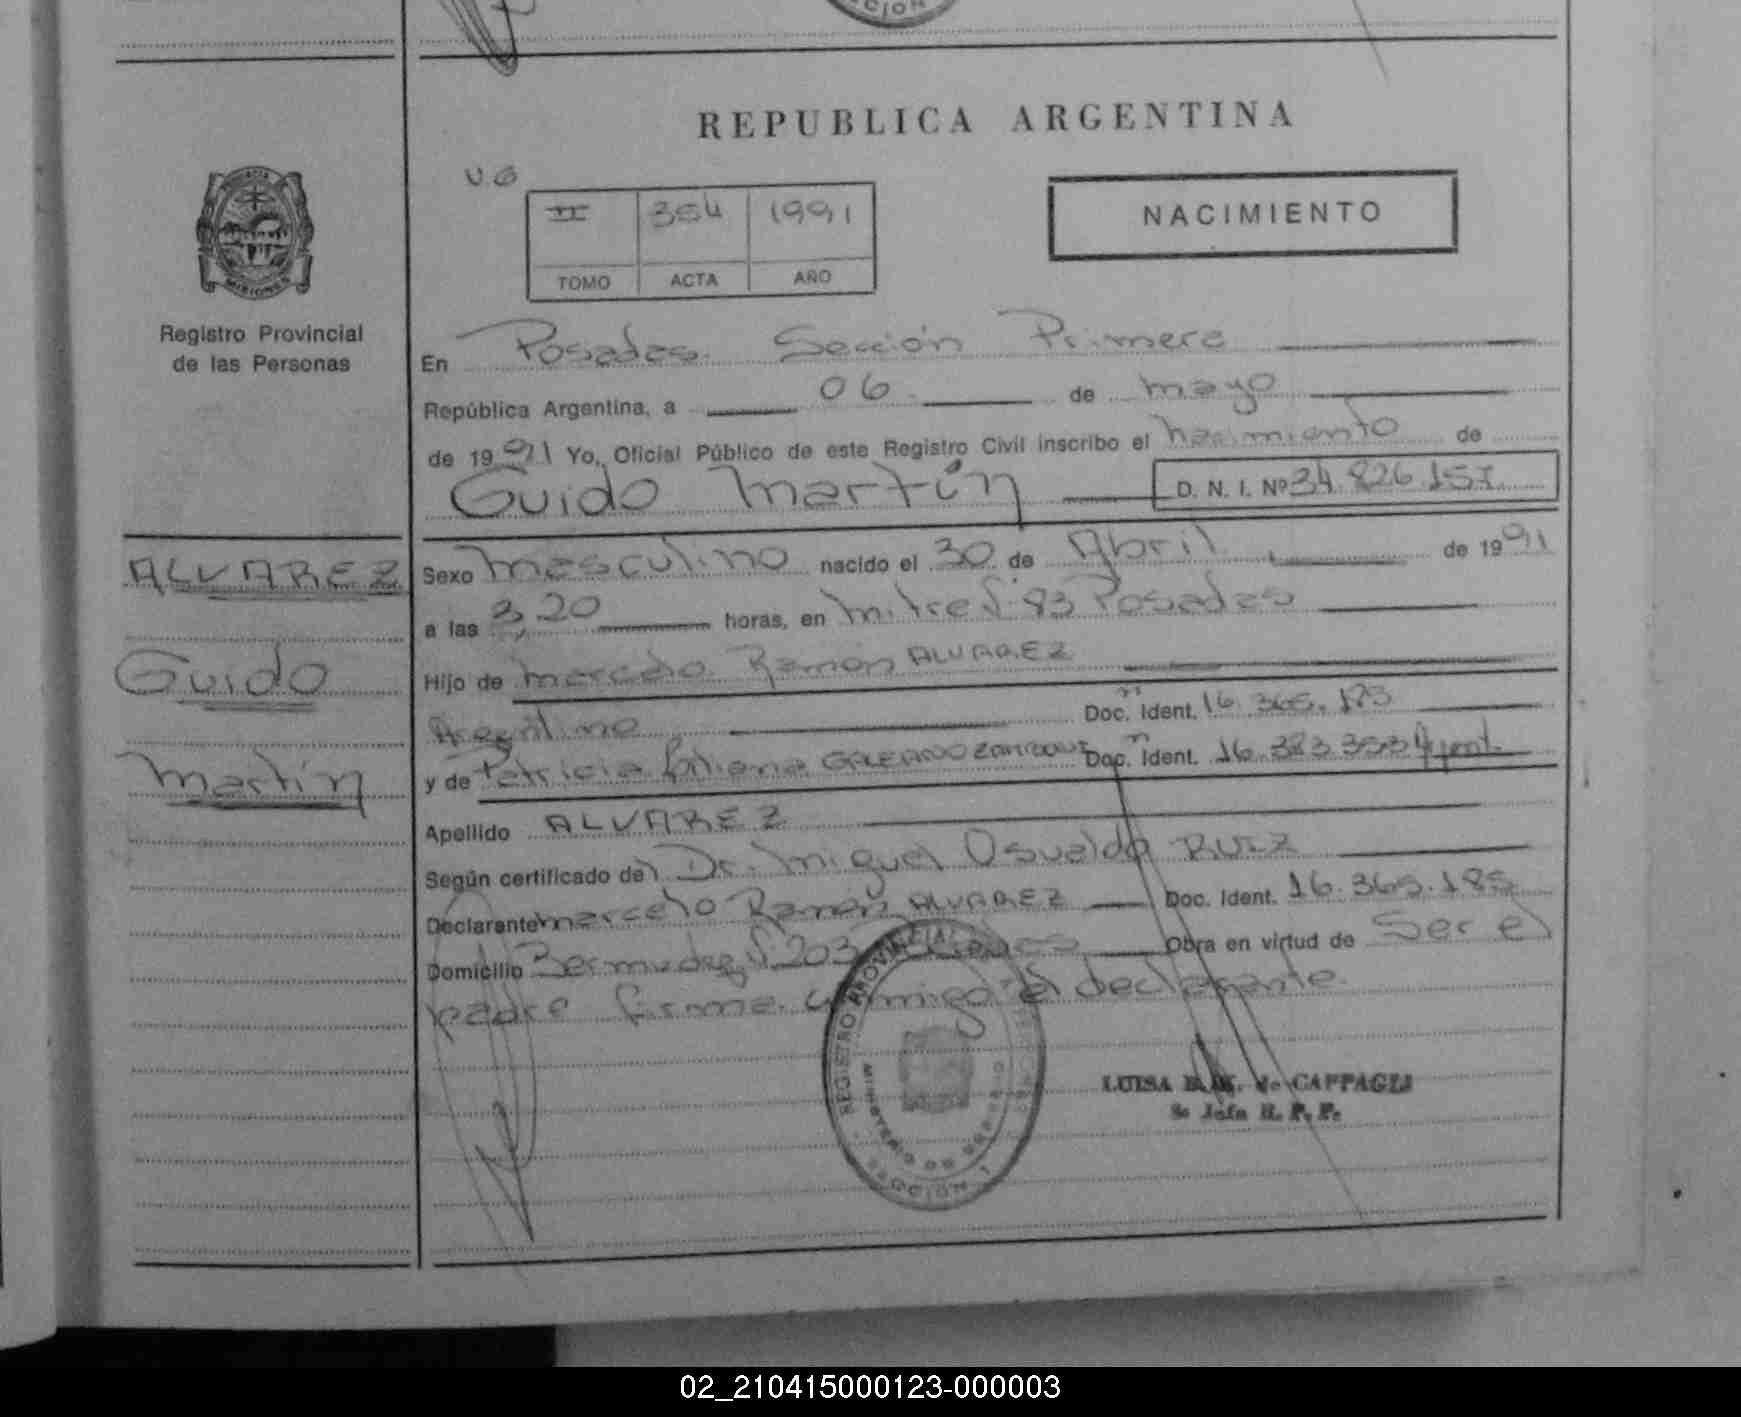 CCION
REPUBLICA ARGENTINA
V.G
II 354 1991
TOMO ACTA AÑO
NACIMIENTO
PROVINCIA
MISIONES
Registro Provincial
de las Personas
En Posadas. Sección Primera
República Argentina, a 06 de mayo
de 1991 Yo, Oficial Público de este Registro Civil inscribo el nacimiento de
Guido Martín D. N. I. Nº 34.826.157
ALVAREZ
Guido
Martín
Sexo masculino nacido el 30 de Abril de 1991
a las 3,20 horas, en Mitre 83 Posadas
Hijo de Marcelo Ramón ALVAREZ
Argentino Doc. Ident. 16.365.185
y de Patricia Liliana GALEANO Doc. Ident. 16.383.353 Argent.
Apellido ALVAREZ
Según certificado del Dr. Miguel Osvaldo RUIZ
Declarante Marcelo Ramón ALVAREZ Doc. Ident. 16.365.185
Domicilio Bermudez 203 Obra en virtud de Ser el
padre firma conmigo el declarante.
REGISTRO PROVINCIAL DE LAS PERSONAS
MINISTERIO DE GOBIERNO
SECCION 1
LUISA de CAPPAGLI
Jefa R. P. P.
02_210415000123-000003